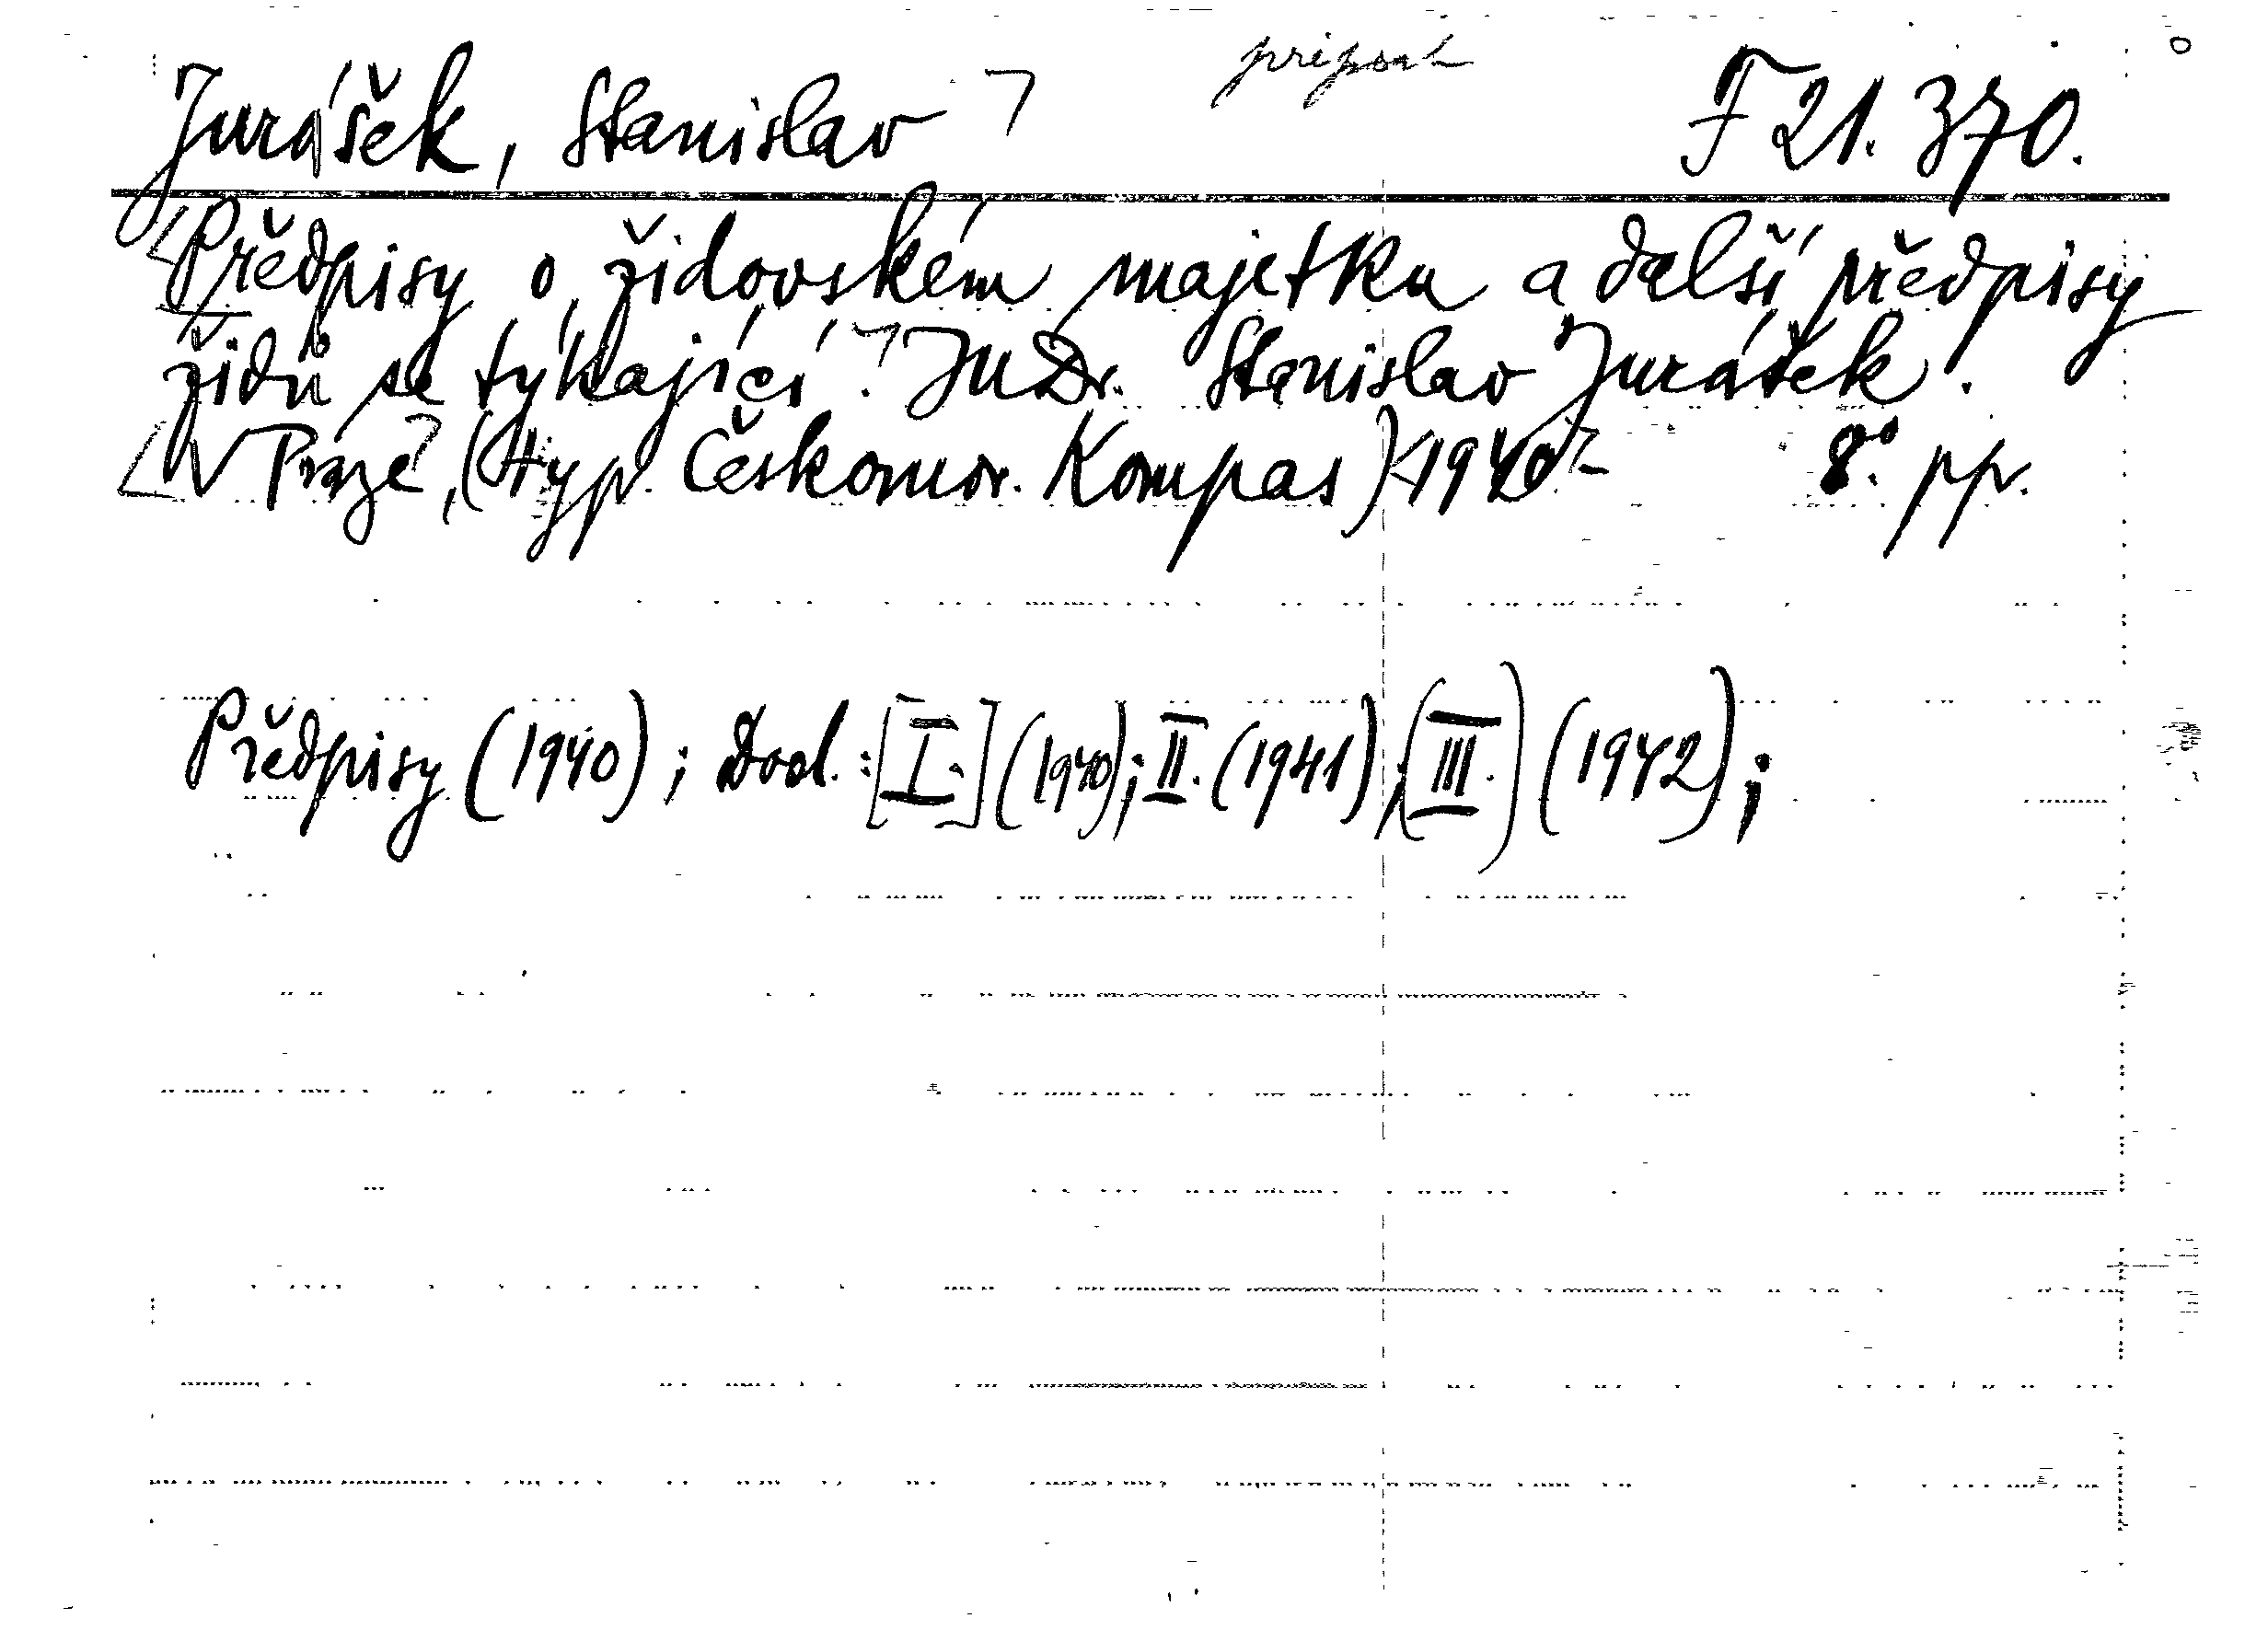 Jurášek, Stanislav připsat F 21.370.
Předpisy o židovském majetku a další předpisy
židů se týkající. JUDr. Stanislav Jurášek.
V Praze, (typ. Českomor. Kompas) 1940 8° pp.
Předpisy (1940); Dod.: [I.] (1940); II. (1941), (III.) (1942);